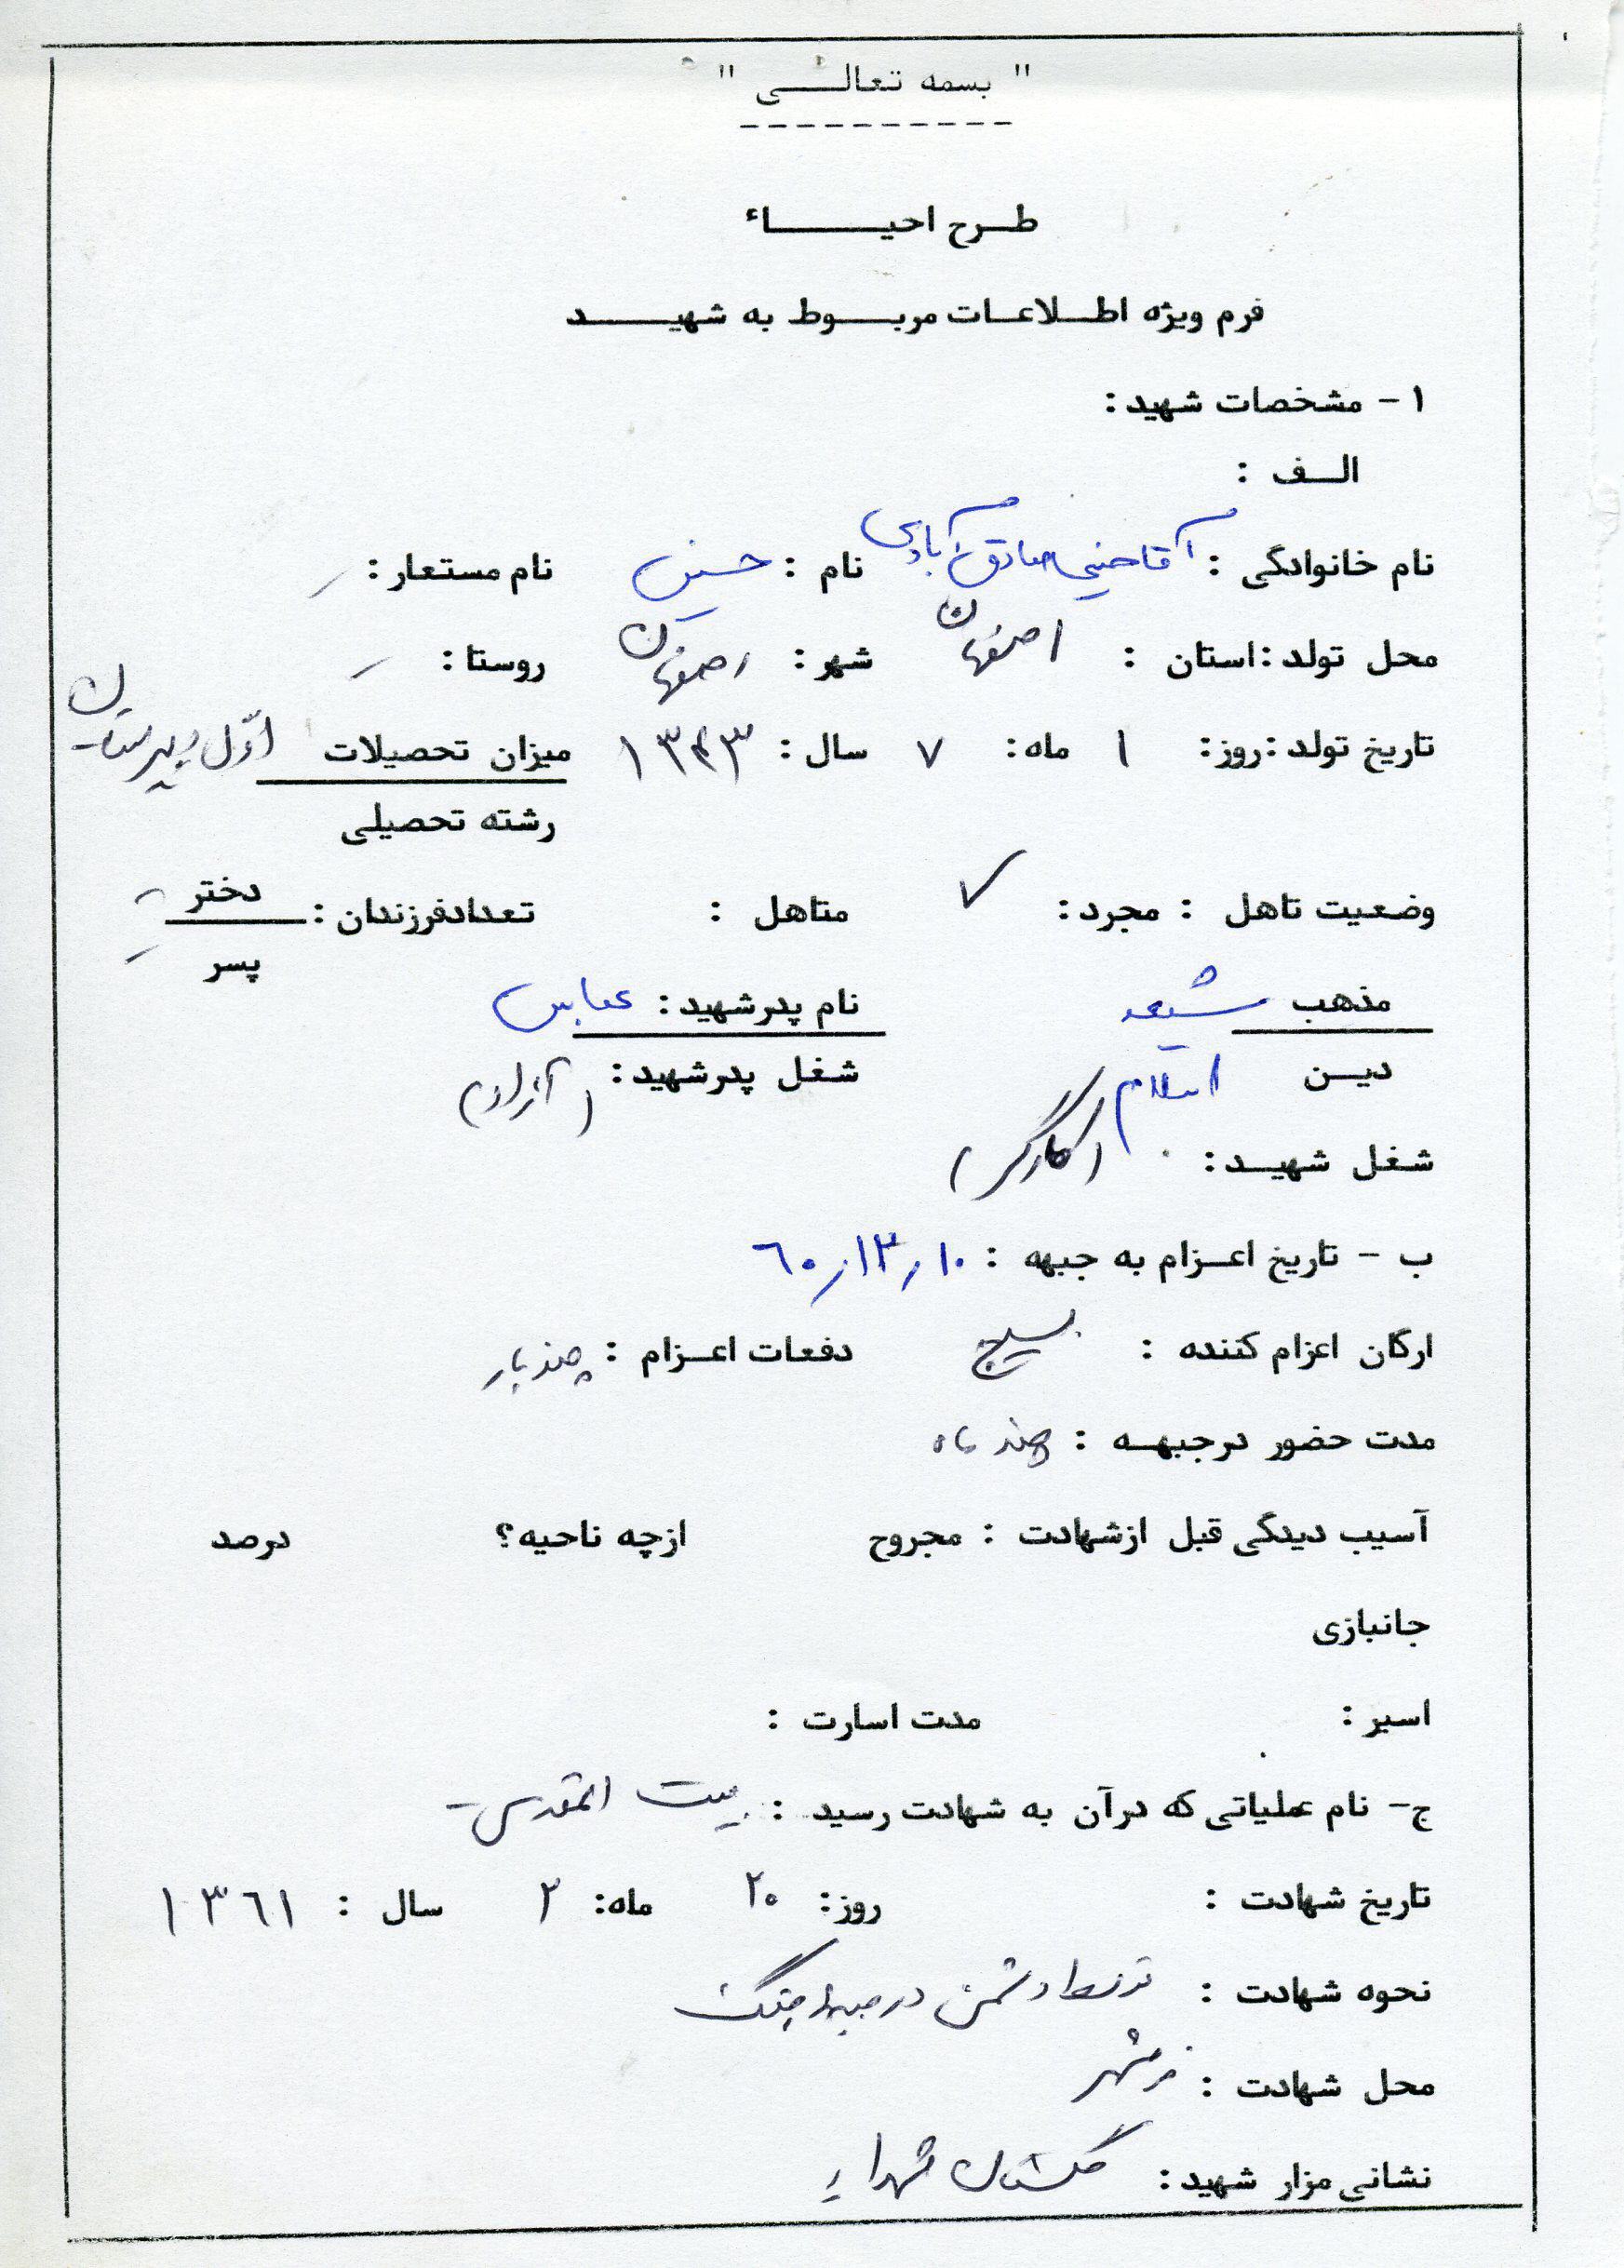 " بسمه تعالی "
طرح احیاء
فرم ویژه اطلاعات مربوط به شهید
۱ - مشخصات شهید :
الف :
نام خانوادگی : آقاحینی صادق آبادی نام : حسین نام مستعار : -
محل تولد : استان : اصفهان شهر : اصفهان روستا : -
تاریخ تولد : روز : ۱ ماه : ۷ سال : ۱۳۴۳ میزان تحصیلات اوّل دبیرستان
رشته تحصیلی
وضعیت تاهل : مجرد : ✓ متاهل : تعدادفرزندان : دختر -
پسر -
مذهب شیعه نام پدرشهید : عباس
دین اسلام شغل پدرشهید : (آزاد)
شغل شهید : (کارگر)
ب - تاریخ اعزام به جبهه : ۶۰/۱۲/۱۰
ارگان اعزام کننده : بسیج دفعات اعزام : چند بار
مدت حضور درجبهه : چند ماه
آسیب دیدگی قبل ازشهادت : مجروح ازچه ناحیه؟ درصد
جانبازی
اسیر : مدت اسارت :
ج - نام عملیاتی که درآن به شهادت رسید : بیت المقدس
تاریخ شهادت : روز : ۲۰ ماه : ۲ سال : ۱۳۶۱
نحوه شهادت : توسط دشمن در جبهه جنگ
محل شهادت : خرمشهر
نشانی مزار شهید : گلستان شهداء